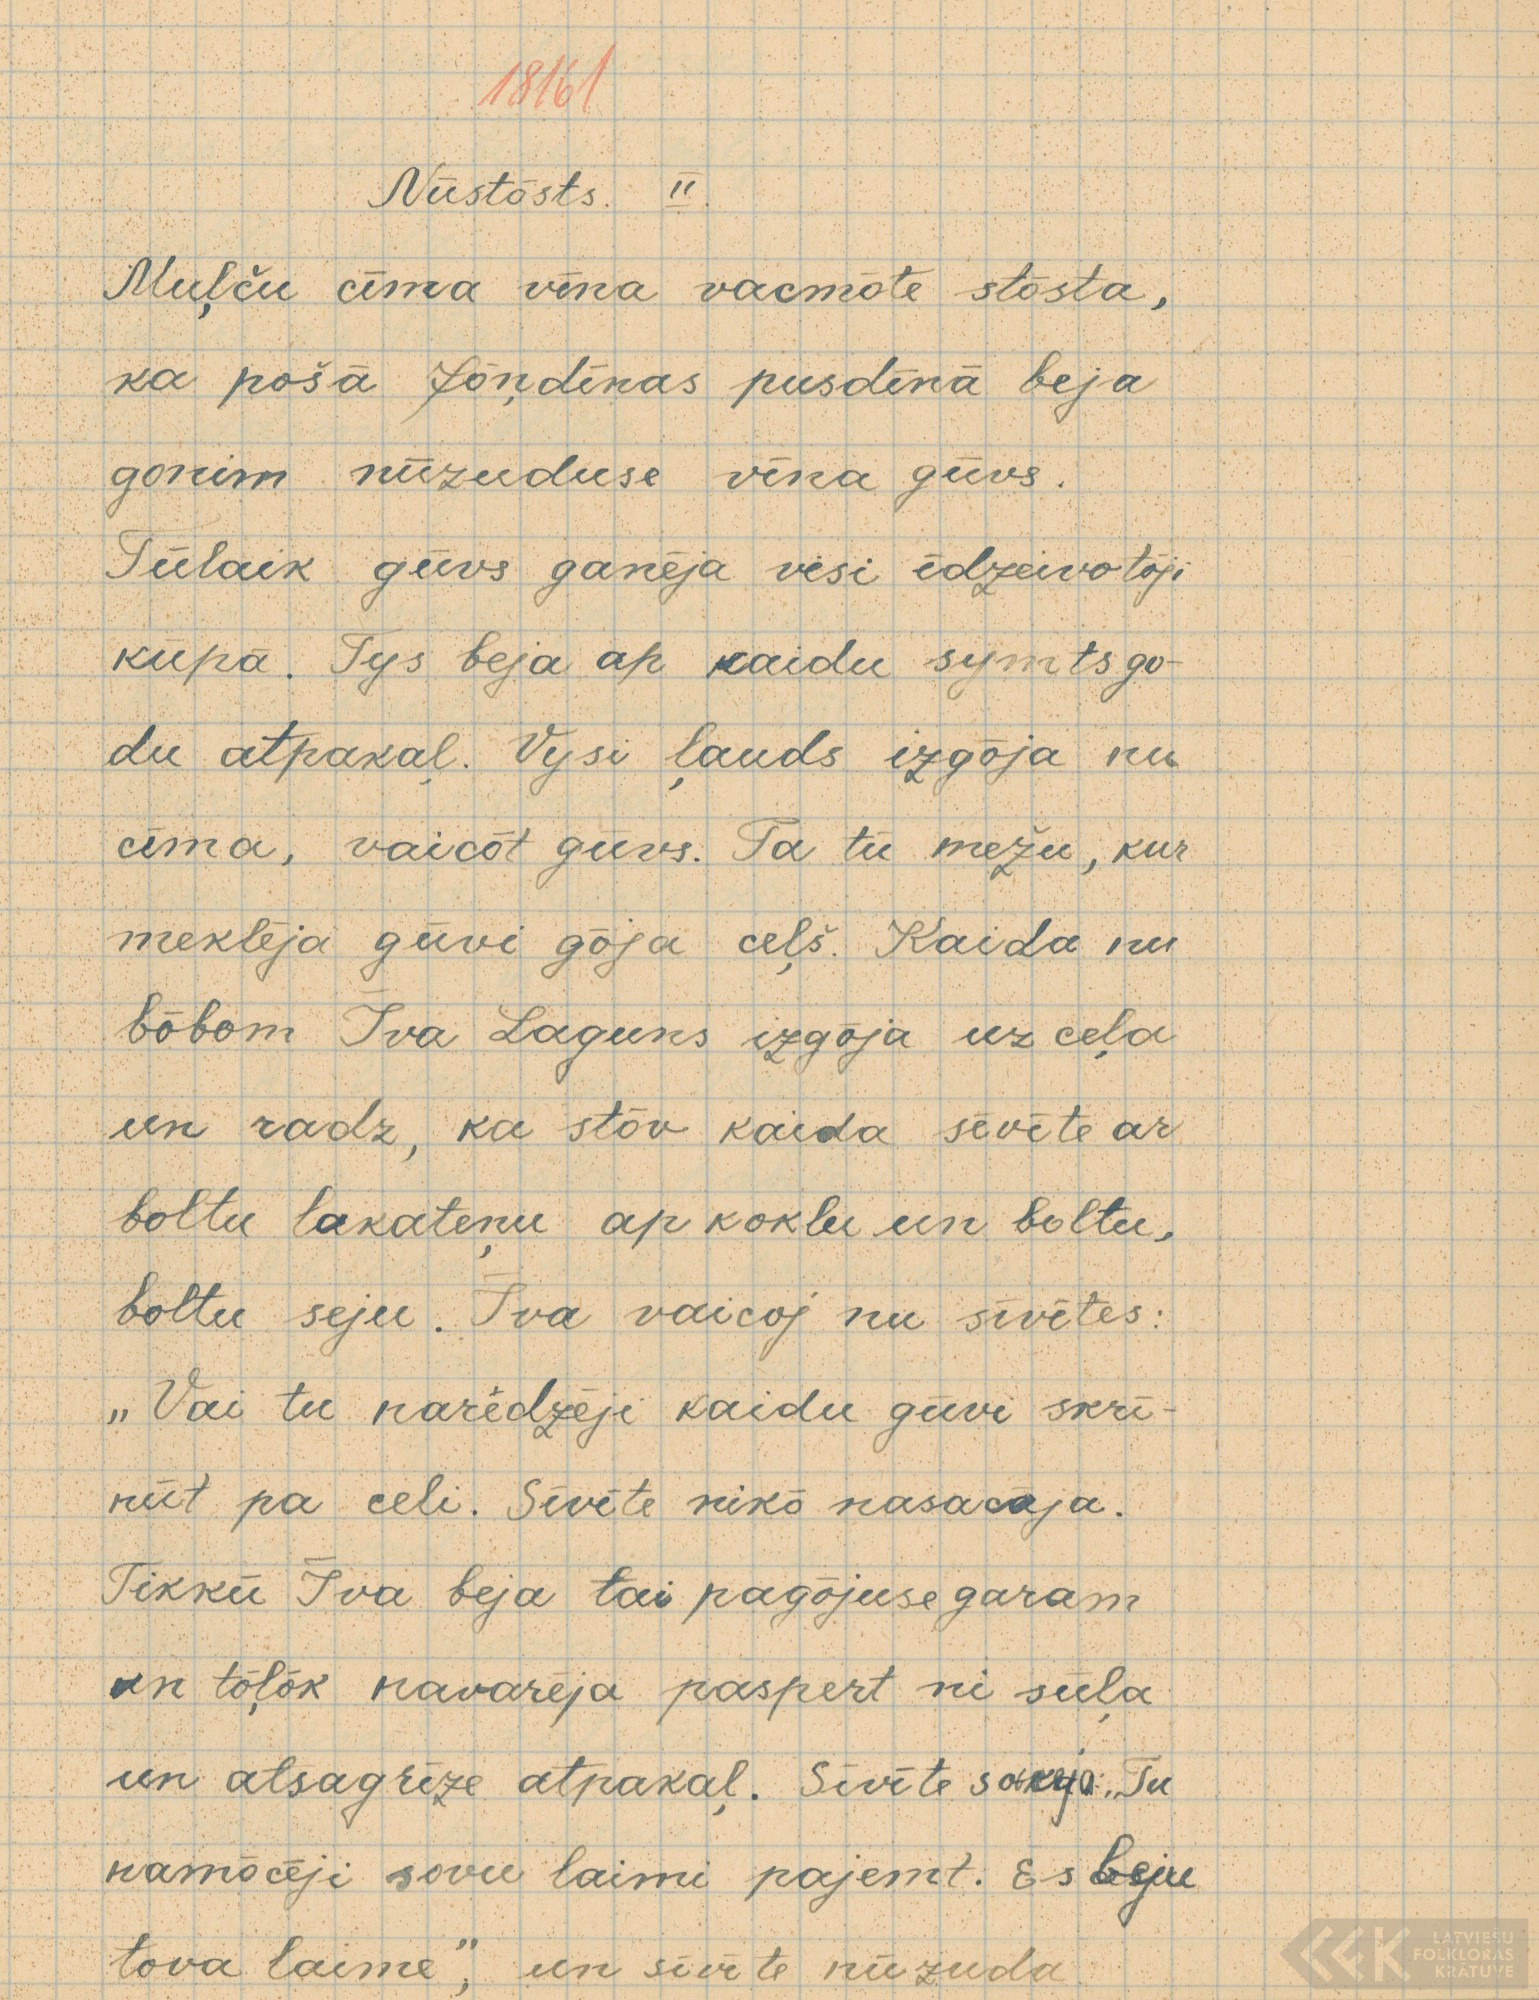 18161
Nūstōsts. II.
Muļču cīma vīna vacmōte stōsta,
ka pošā Jōņdīnas pusdīnā beja
gonim nūzuduse vīna gūvs.
Tūlaik gūvs ganēja visi īdzeivotōji
kūpā. Tys beja ap kaidu symts go-
du atpakaļ. Vysi ļauds izgōja nu
cīma, vaicōt gūvs. Ta tū mežu, kur
meklēja gūvi gōja ceļš. Kaida nu
bōbom Īva Laguns izgōja uz ceļa
un radz, ka stōv kaida sīvīte ar
boltu lakateņu ap koklu un boltu,
boltu seju. Īva vaicoj nu sīvītes:
„Vai tu narēdzēji kaidu gūvi skrī-
nūt pa celi. Sīvīte nikō nasacēja.
Tikkū Īva beja tai pagōjuse garam
un tōļōk navarēja paspert ni sūļa
un atsagrīze atpakaļ. Sīvīte sacēja: „Tu
namōcēji sovu laimi pajemt. Es beju
tova laime”, un sīvīte nūzuda
LATVIEŠU
FOLKLORAS
KRĀTUVE